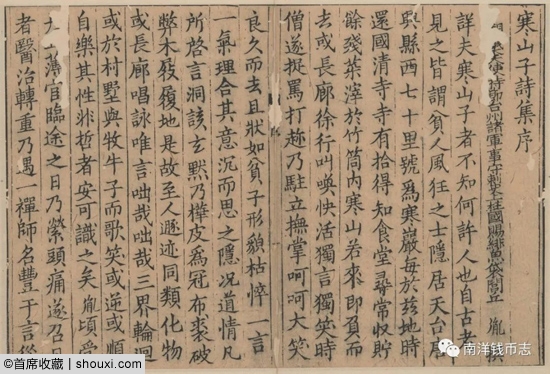 寒山子詩集序
台州諸軍事守刺史上柱國賜緋魚袋閭丘 胤
詳夫寒山子者不知何許人也自古老
見之皆謂貧人風狂之士隱居天台唐
興縣西七十里號爲寒巖每於兹地時
還國清寺寺有拾得知食堂尋常收貯
餘殘菜滓於竹筒内寒山若來即負而
去或長廊徐行叫喚快活獨言獨笑時
僧遂捉罵打趂乃駐立撫掌呵呵大笑
良久而去且狀如貧子形貌枯悴一言
一氣理合其意沉而思之隱況道情凡
所啓言洞該玄默乃樺皮爲冠布裘破
弊木屐履地是故至人遯迹同類化物
或長廊唱詠唯言咄哉咄哉三界輪迴
或於村墅與牧牛子而歌笑或逆或順
自樂其性非哲者安可識之矣 胤頃受
薄官臨途之日乃縈頭痛遂召日
者醫治轉重乃遇一禪師名豐干言從
@首席收藏 | shouxi.com
南洋钱币志